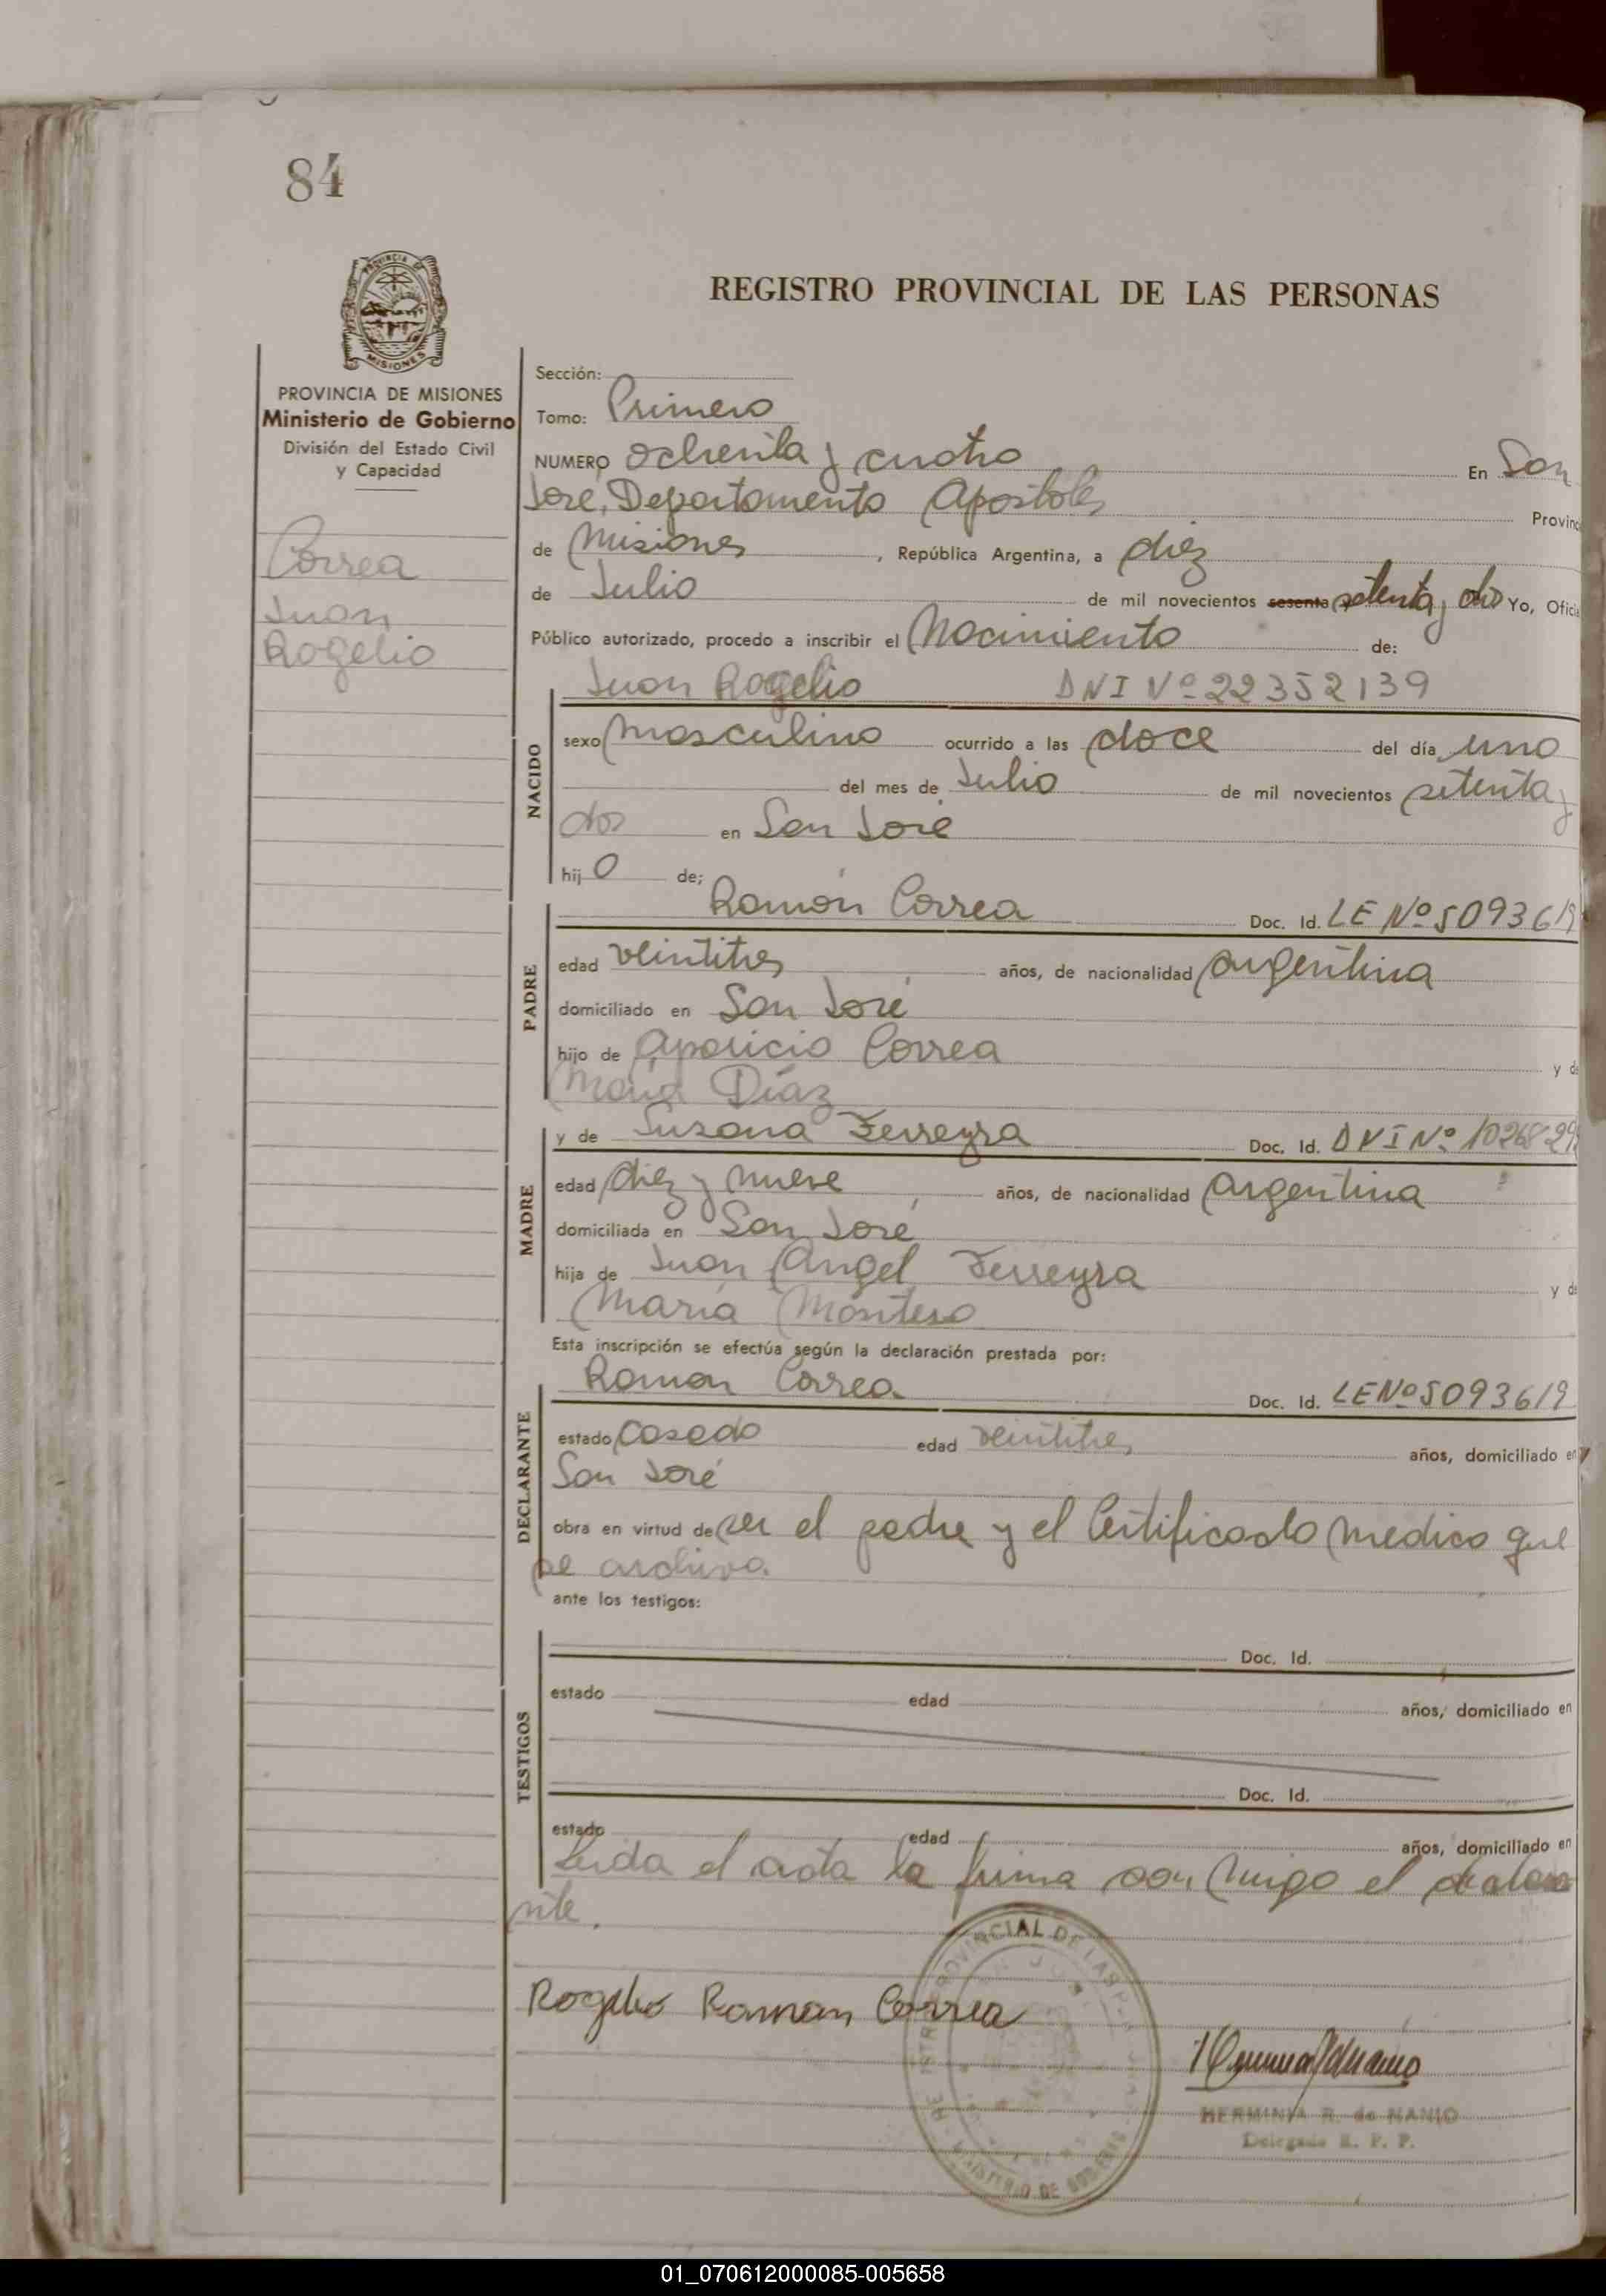 84
REGISTRO PROVINCIAL DE LAS PERSONAS
MISIONES
PROVINCIA DE MISIONES
Ministerio de Gobierno
División del Estado Civil
y Capacidad
Correa
Juan
Rogelio
Sección:
Tomo: Primero
NUMERO ochenta y cuatro En San
José, Departamento Apóstoles Provinc
de Misiones, República Argentina, a diez
de Julio de mil novecientos sesenta setenta y dos Yo, Oficia
Público autorizado, procedo a inscribir el Nacimiento de:
Juan Rogelio DNI Nº 22352139
NACIDO
sexo masculino ocurrido a las doce del día uno
del mes de Julio de mil novecientos setenta y
dos en San José
hijo de;
PADRE
Ramón Correa Doc. Id. LE Nº 5093619
edad veintitres años, de nacionalidad argentina
domiciliado en San José
hijo de Aparicio Correa y d
María Díaz
MADRE
y de Susana Ferreyra Doc. Id. DNI Nº 1026829
edad diez y nueve años, de nacionalidad argentina
domiciliada en San José
hija de Juan Angel Ferreyra y d
María Montero
Esta inscripción se efectúa según la declaración prestada por:
DECLARANTE
Ramon Correa Doc. Id. LE Nº 5093619
estado casado edad veintitres años, domiciliado en
San José
obra en virtud de ser el padre y el Certificado medico que
se archiva.
ante los testigos:
TESTIGOS
Doc. Id.
estado edad años, domiciliado en
Doc. Id.
estado edad años, domiciliado en
Leida el acta la firma conmigo el declara
nte.
Rogelio Ramon Correa
HERMINIA R. de NANIO
Delegada R. P. P.
PROVINCIAL DE LAS
MINISTERIO DE GOBIERNO
01_070612000085-005658